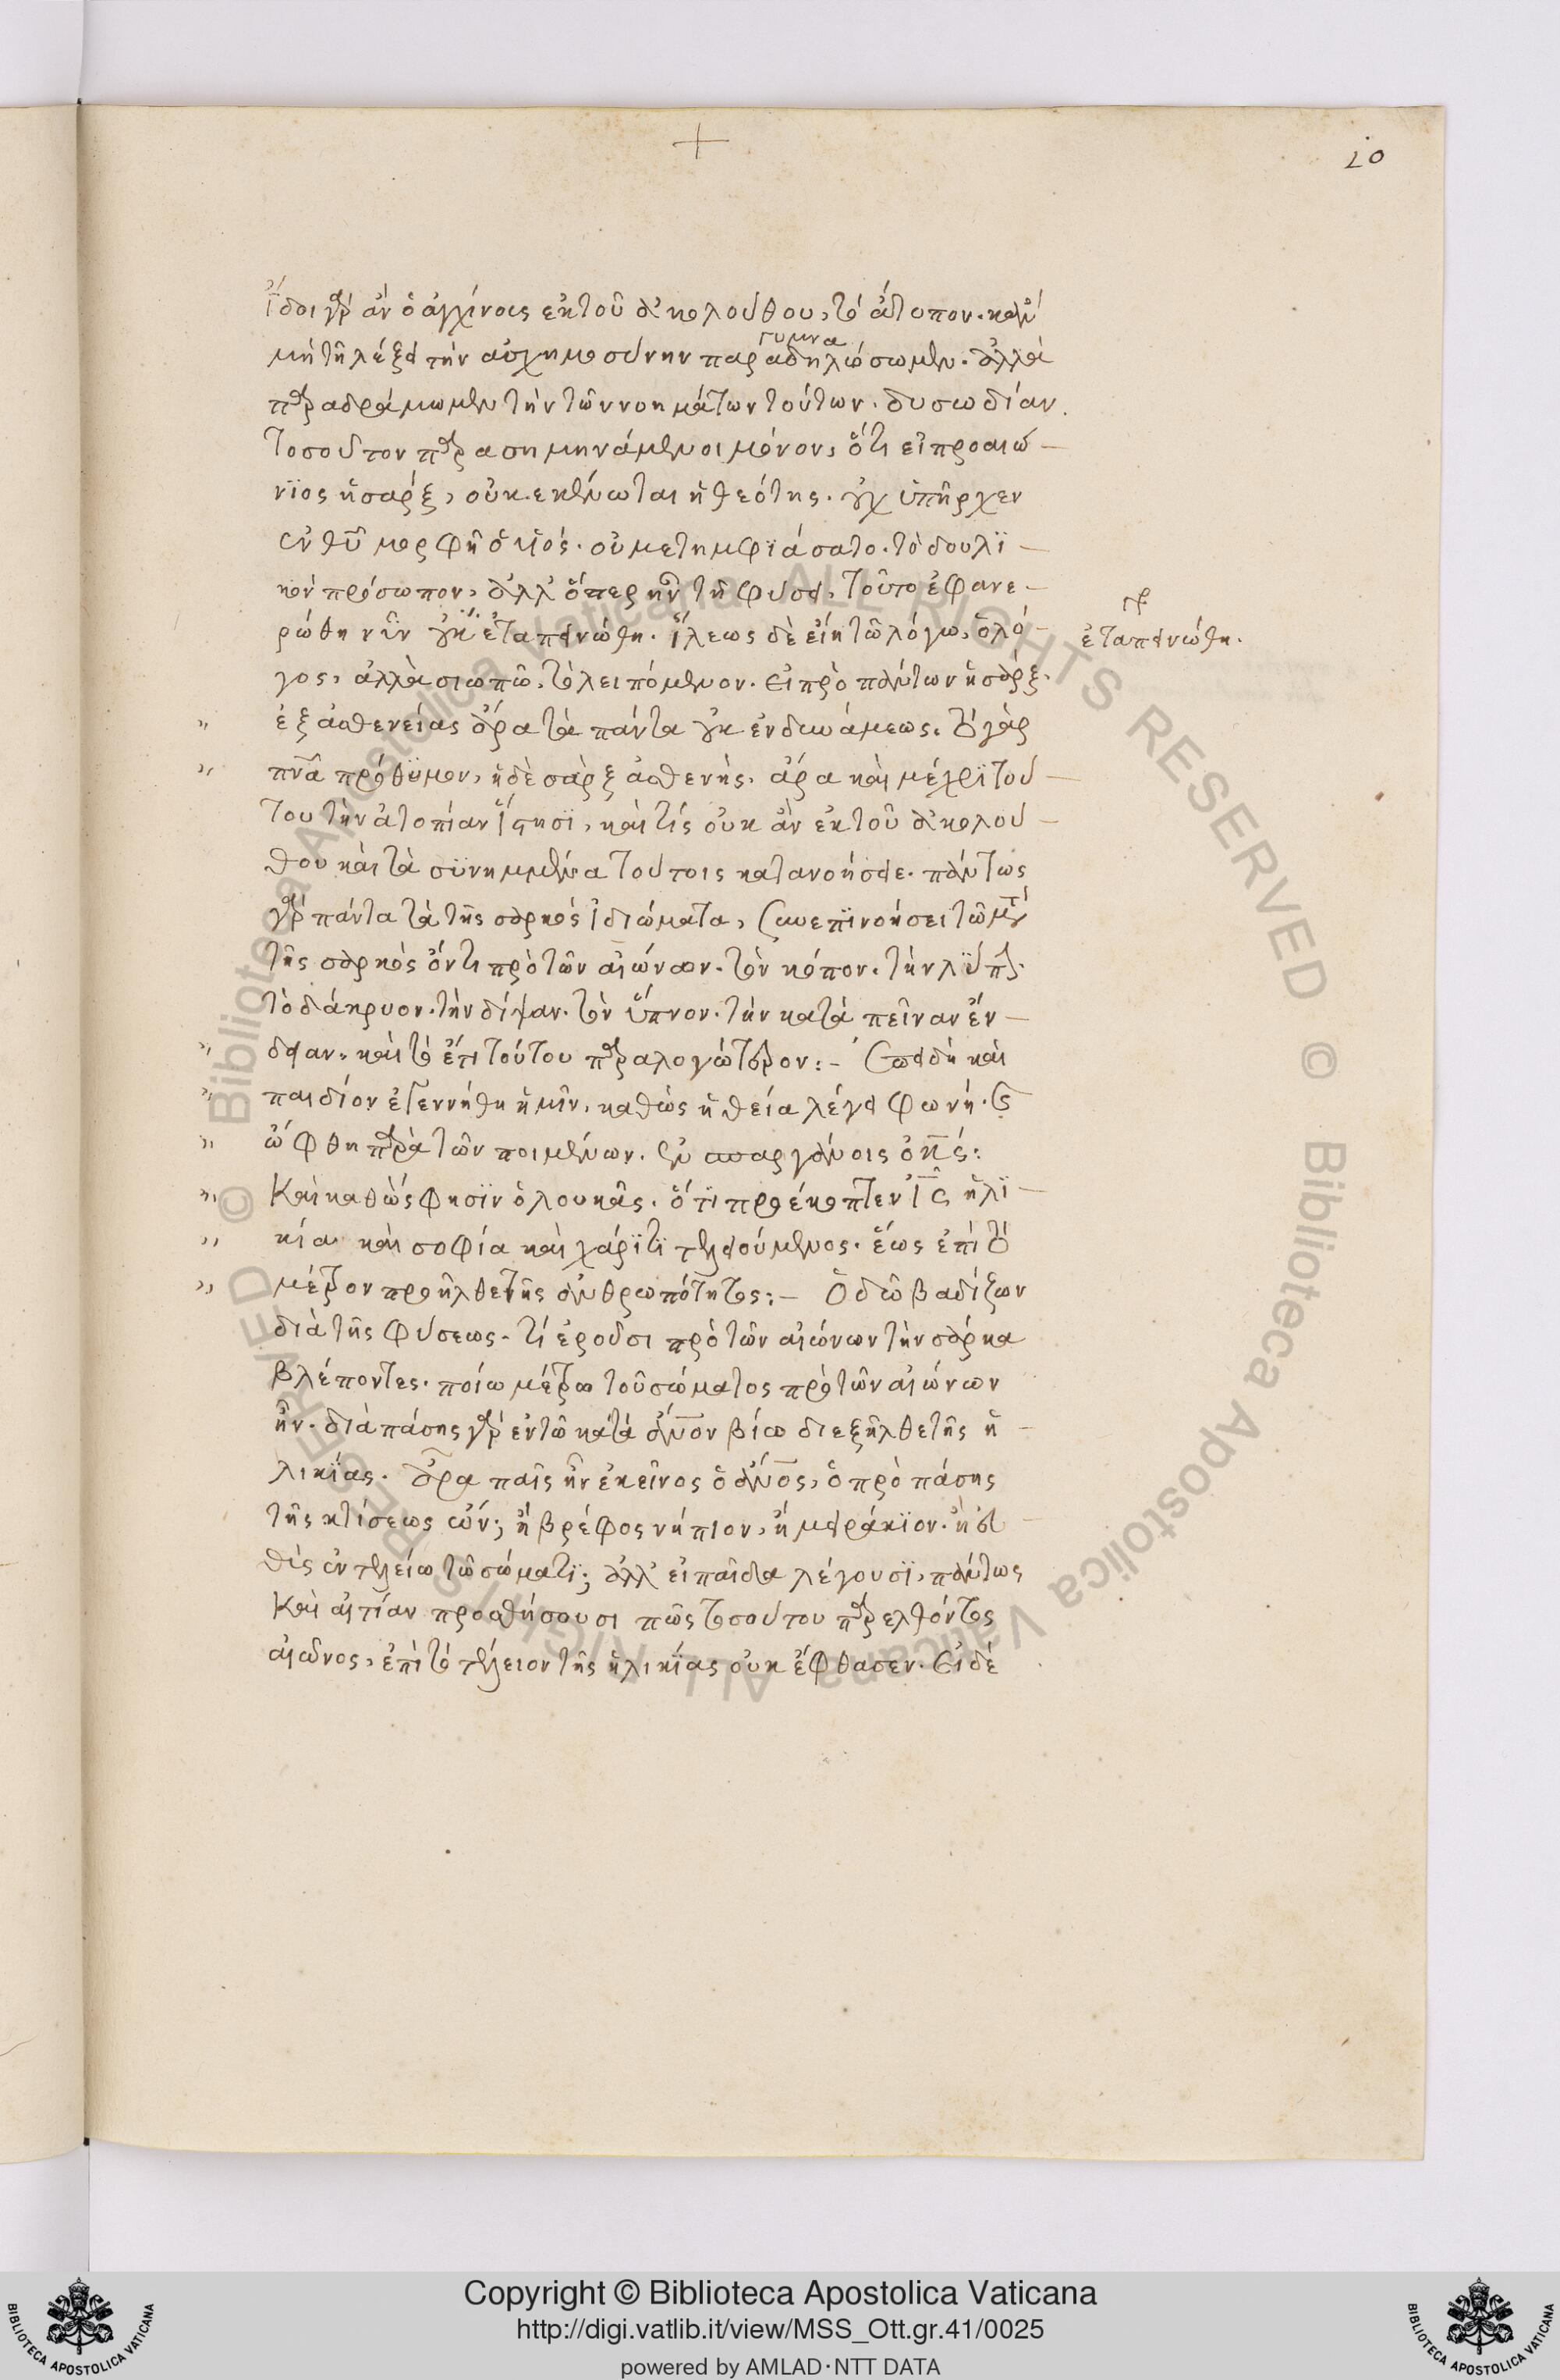 +
20
ἴδοι γὰρ ἂν ὁ ἀγχίνοις ἐκ τοῦ ἀκολούθου, τὸ ἄτοπον. κἂν
γυμνα
μὴ τῇ λέξει τὴν ἀσχημοσύνην παραδηλώσωμεν. ἀλλὰ
παραδράμωμεν τὴν τῶν νοημάτων τούτων. δυσωδίαν.
τοσοῦτον παρασημηνάμενοι μόνον, ὅτι εἰ προαιώ-
νϊος ἡ σαρξ, οὐκ ἐκένωται ἡ θεότης. οὐχ ὑπῆρχεν
ἐν θῦ μορφῆ ὁ υἱός. οὐ μετημφϊάσατο. τὸ δουλϊ-
κὸν πρόσωπον, ἀλλ' ὅπερ ἦν τῇ φύσει, τοῦτο ἐφανε-
ρώθη νῦν οὐκ ἐταπεινώθη. ἵλεως δὲ εἴη τῶ λόγω, ὁ λό-
ἐταπεινώθη.
γος, ἀλλὰ σιωπῶ, τὸ λειπόμενον. εἰ πρὸ πάντων ἡ σάρξ.
" ἐξ ἀσθενείας ἄρα τὰ πάντα οὐκ ἐν δυνάμεως. τὸ γὰρ
" πνα πρόθυμον, ἡ δὲ σὰρξ ἀσθενής. ἄρα καὶ μέχρϊ τού-
του τὴν ἀτοπίαν ἵστησϊ, καὶ τίς οὐκ ἂν ἐκ τοῦ ἀκολού-
θου καὶ τὰ συνημμένα τούτοις κατανοήσειε. πάντως
γὰρ πάντα τὰ τῆς σαρκὸς ἰδιώματα, συνεπϊνοήσει τῶ μετὰ
τῆς σαρκὸς ὄντι πρὸ τῶν αἰώνων. τὸν κόπον. τὴν λύπην.
τὸ δάκρυον. τὴν δίψαν. τὸν ὕπνον. τὴν κατὰ πεῖναν ἔν-
" δειαν. καὶ τὸ ἐπι τούτου παραλογώτερον:- ἐπειδὴ καὶ
" παιδίον ἐγεννήθη ἡμῖν, καθὼς ἡ θεία λέγει φωνή. καὶ
" ὤφθη παρὰ τῶν ποιμένων. ἐν σπαργάνοις ὁ κς:
" Καὶ καθώς φησϊν ὁ λουκᾶς. ὅτϊ προέκοπτεν ἰς ἡλϊ-
" κία καὶ σοφία καὶ χάρϊτϊ τελειούμενος. ἕως ἐπὶ τὸ
" μέτρον προῆλθε τῆς ἀνθρωπότητος:- Ὁδῶ βαδίζων
διὰ τῆς φύσεως. τί ἐροῦσι πρὸ τῶν αἰώνων τὴν σάρκα
βλέποντες. ποίω μέτρω τοῦ σώματος πρὸ τῶν αἰώνων
ἦν. διὰ πάσης γὰρ ἐν τῶ κατὰ ἄνον βίω διεξῆλθε τῆς ἡ-
λικίας. ἆρα παῖς ἦν ἐκεῖνος ὁ ἄνος, ὁ πρὸ πάσης
τῆς κτίσεως ὤν; ἢ βρέφος νήπιον, ἢ μειράκϊον. ἢ εὐ-
θὺς ἐν τελείω τῶ σώματϊ; ἀλλ' εἰ παῖδα λέγουσϊ, πάντως
Καὶ αἰτίαν προσθήσουσι πῶς τοσούτου παρελθόντος
αἰῶνος, ἐπὶ τὸ τέλειον τῆς ἡλικίας οὐκ ἔφθασεν. Εἰ δὲ
Copyright © Biblioteca Apostolica Vaticana
http://digi.vatlib.it/view/MSS_Ott.gr.41/0025
powered by AMLAD·NTT DATA